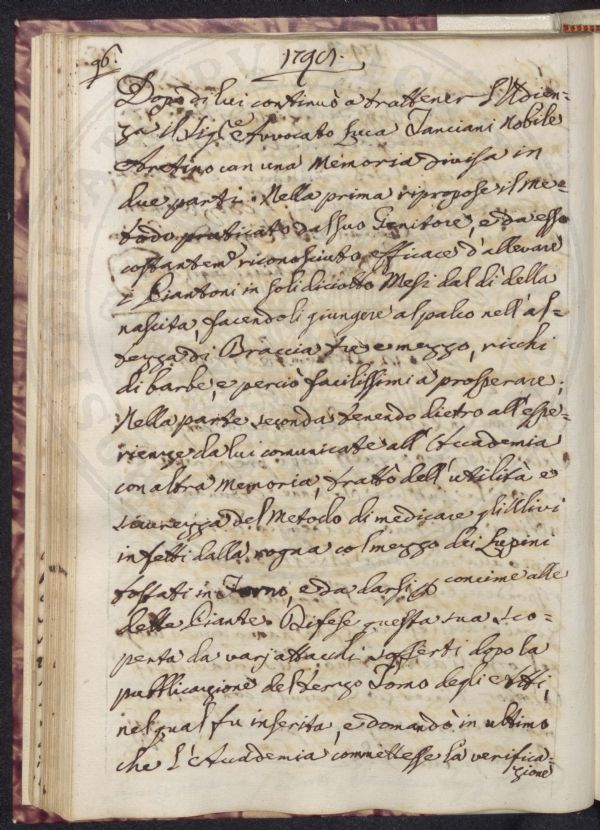 96.
1791.
Dopo di lui continuò a trattener l'Udien=
za il Sig.e Avvocato Luca Tanciani Nobile
Aretino con una Memoria divisa in
due parti. Nella prima ripropose il me=
todo praticato dal suo Genitore, e da esso
costantem.e riconosciuto efficace d'allevare
i Piantoni in soli diciotto Mesi dal dì della
nascita facendoli giungere al palco nell'al=
tezza di Braccia tre e mezzo, ricchi
di barbe, e perciò facilissimi a prosperare;
Nella parte seconda tenendo dietro all'espe=
rienze da lui comunicate all'Accademia
con altra Memoria, trattò dell'utilità e
sicurezza del Metodo di medicare gli Ulivi
infetti dalla rogna col mezzo dei Lupini
tostati in Forno, e da darsi p concime alle
dette Piante. Difese questa sua sco=
perta da varj attacchi sofferti dopo la
pubblicazione del terzo Tomo degli Atti,
nel qual fu inserita, e domandò in ultimo
che l'Accademia commettesse la verifica=
zione